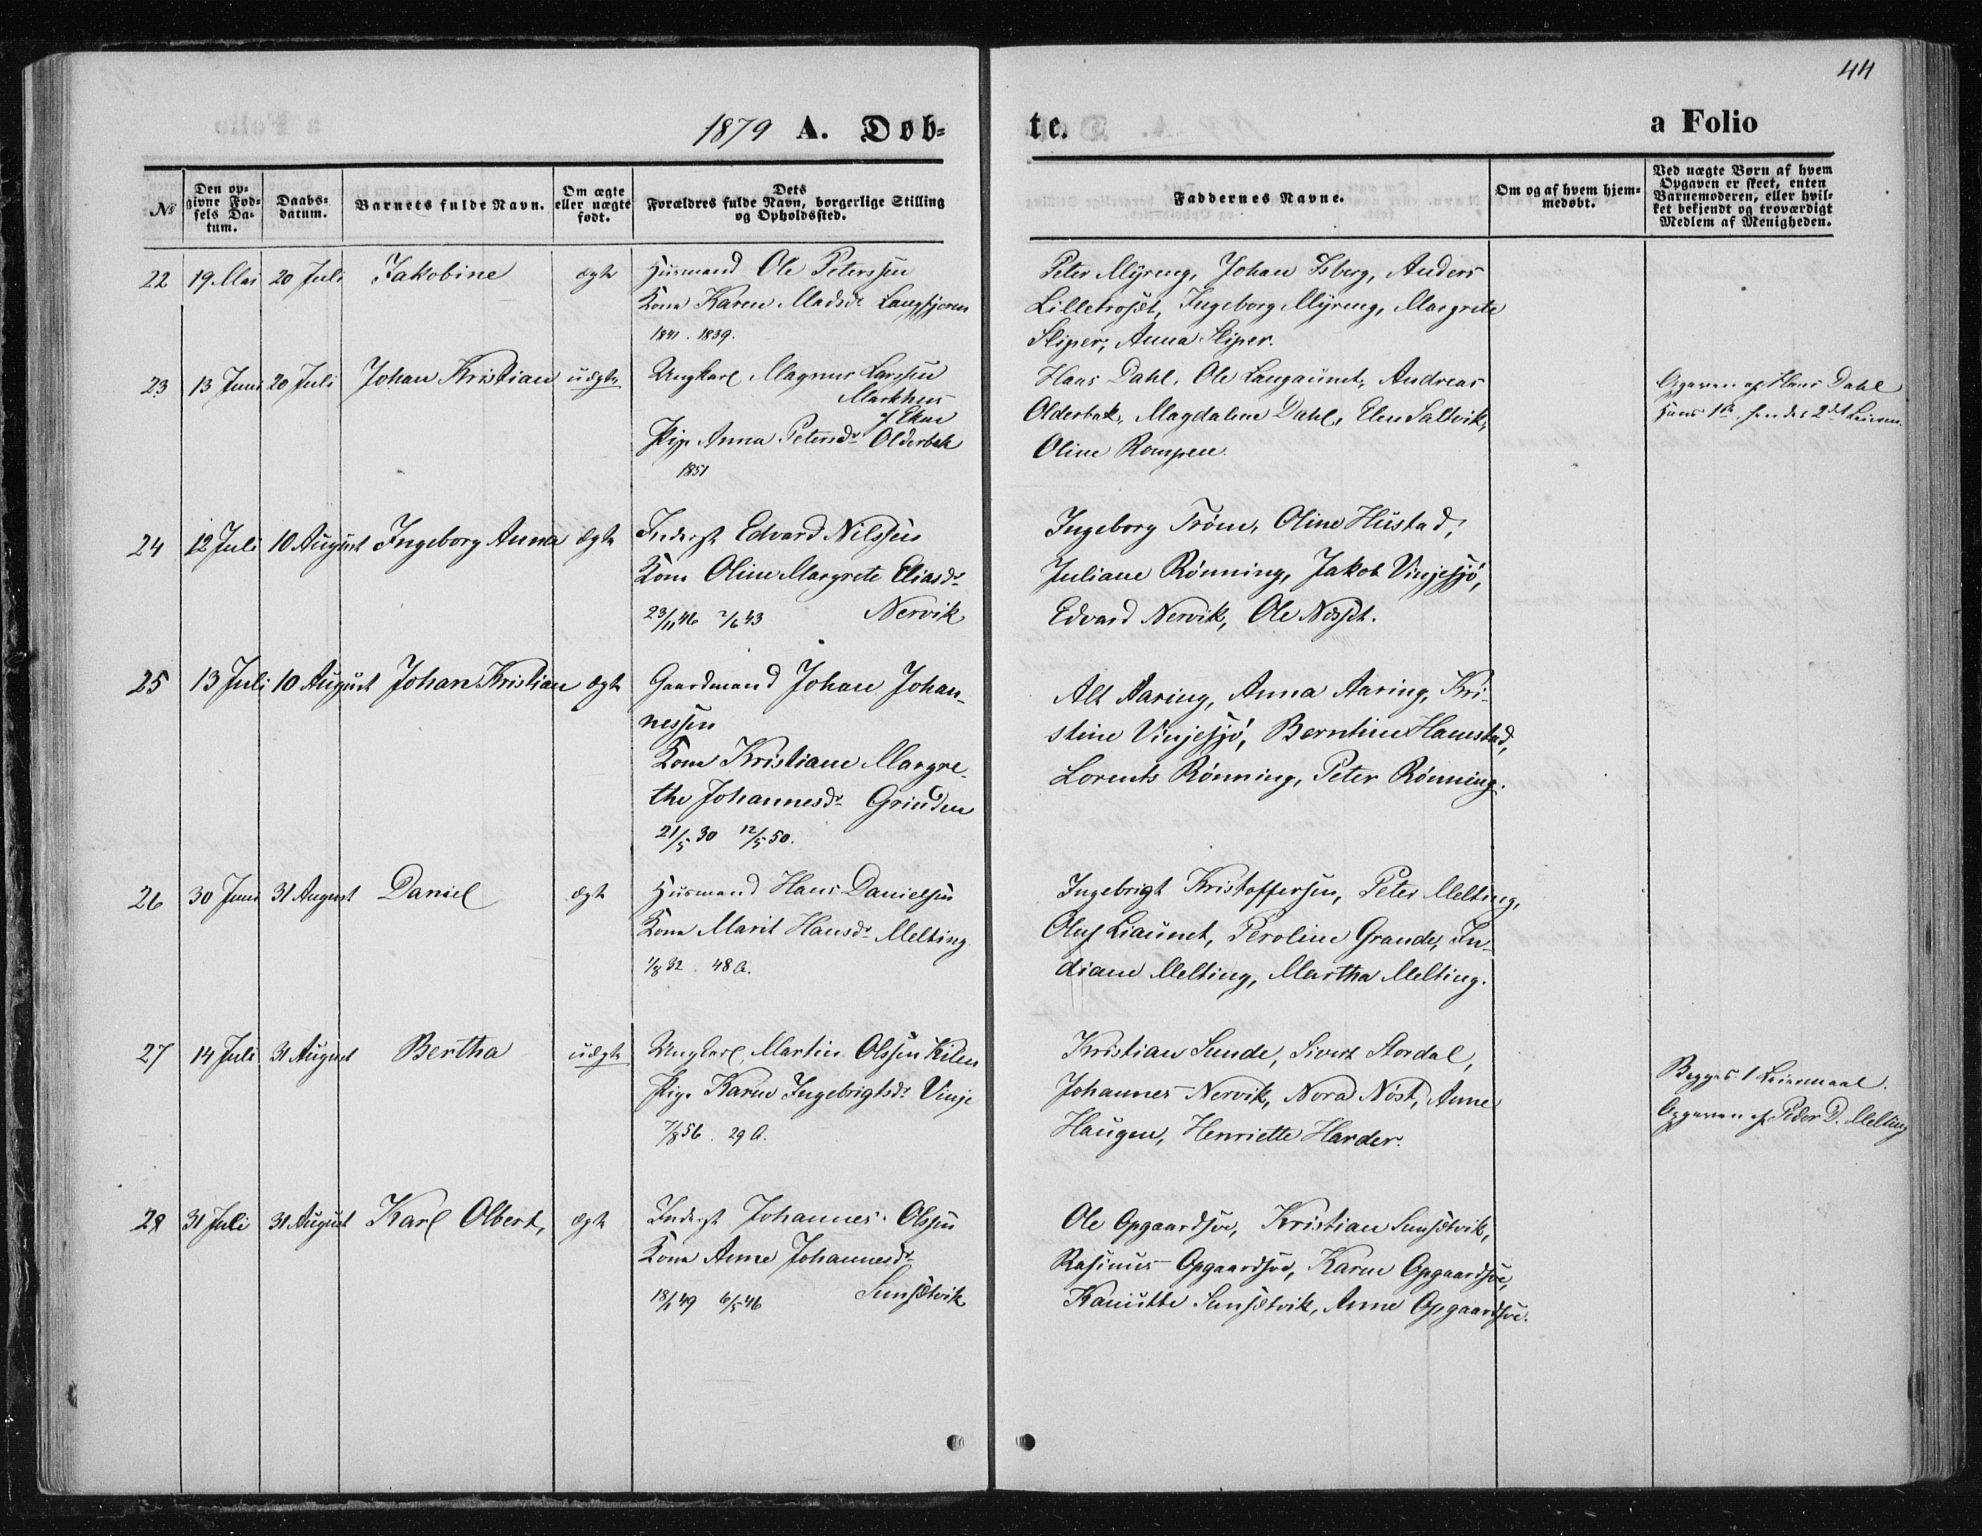 44
1879 A. Døb-
te.
a Folio
No
Den op-
givne Fød-
sels Da-
tum.
Daabs-
datum.
Barnets fulde Navn.
Om ægte
eller uægte
født.
Dets
Forældres fulde Navn, borgerlige Stilling
og Opholdssted.
Faddernes Navne.
Om og af hvem hjem-
medøbt.
Ved uægte Børn af hvem
Opgaven er skeet, enten
Barnemoderen, eller hvil-
ket bekjendt og troværdigt
Medlem af Menigheden.
22 19 Mai 20 Juli Jakobine ægte Husmand Ole Peterssen
Kone Karen Madsdr
1841. 1839.
Peter Myreng, Johan Isberg, Anders
Lilletroset, Ingeborg Myreng, Margrete
Sliper, Anna Sliper.
23 13 Juni 20 Juli Johan Kristian uægte Ungkarl Magnus Larssen
Pige Anna Petersdr Olderbak
1851
Hans Dahl, Ole Langaunet, Andreas
Olderbak, Magdalena Dahl, Elen Saltvik,
Oline Rompen.
Opgaven af Hans Dahl
Hans 1ste, hendes 2det Leierm.
24 12 Juli 10 August Ingeborg Anna ægte Inderst Edvard Nilssen
Kone Oline Margrete Eliasdr
23/11 46 2/6 43 Nervik
Ingeborg Trøen, Oline Hustad,
Juliane Rønning, Jakob Vinjesjø,
Edvard Nervik, Ole
25 13 Juli 10 August Johan Kristian ægte Gaardmand Johan Johan-
nessen
Kone Kristiane Margre-
the Johannesdr Grinden
21/5 30 12/5 50.
Alt Aaring, Anna Aaring, Kri-
stine Vinjesjø, Berntine Hamstad,
Lorents Rønning, Peter Rønning.
26 30 Juni 31 August Daniel ægte Husmand Hans Danielsen
Kone Marit Hansdr Melting
1/8 32. 48 A.
Ingebrigt Kristoffersen, Peter Melting,
Oluf Liaunet, Peroline Grande, In-
diane Melting, Martha Melting.
27 14 Juli 31 August Bertha uægte Ungkarl Martin Olssen Kilen
Pige Karen Ingebrigtsdr Vinje
7/8 56. 29 A.
Kristian Sunde, Sivert Stordal,
Johannes Nervik, Nora Nøst, Anne
Haugen, Henriette Harder.
Begges 1 Leiermaal.
Opgaven af Peder D. Melting
28 31 Juli 31 August Karl Olbert, ægte Inderst Johannes Olssen
Kone Anne Johannesdr
18/1 49 6/5 46 Sunsetvik
Ole Opgaardsøe, Kristian Sunsetvik,
Rasinus Opgaardsøe, Karen Opgaardsøe,
Kanutte Sunsetvik, Anne Opgaardsøe.